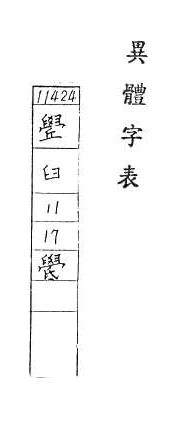 異體字表
11424
臼
11
17